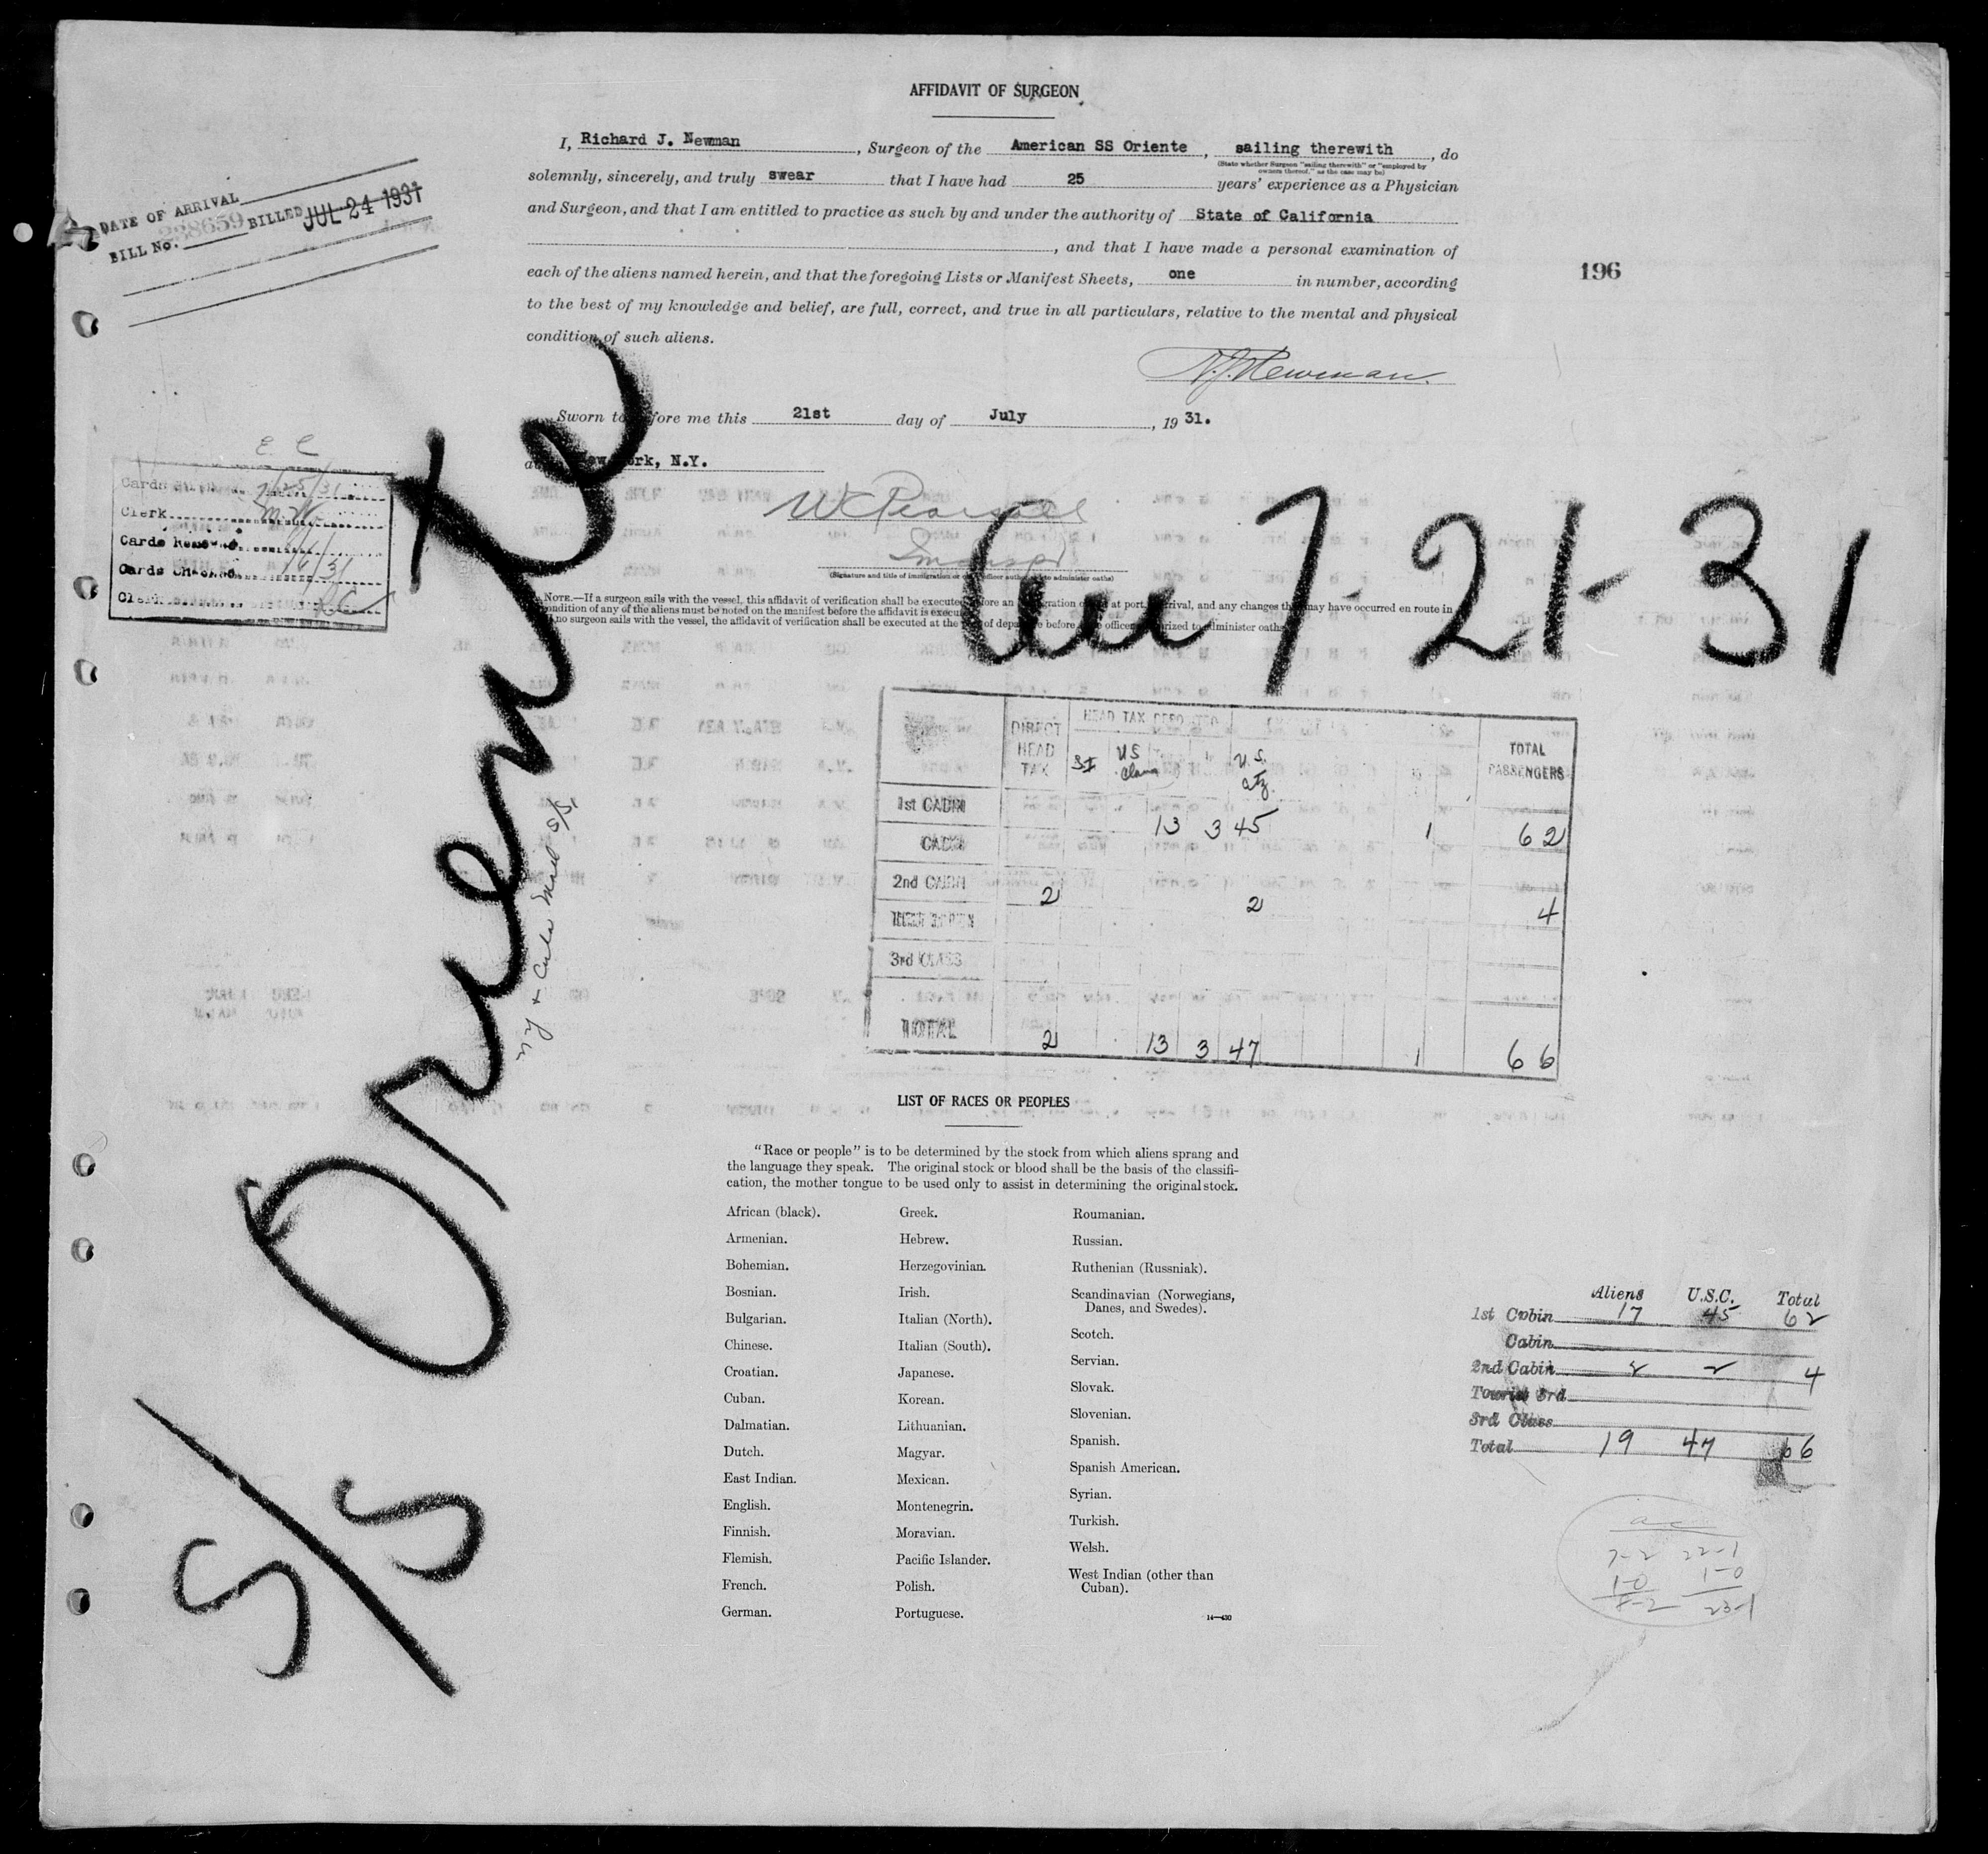 AFFIDAVIT OF SURGEON
I, Richard J. Newman, Surgeon of the American SS Oriente, sailing therewith, do
(State whether Surgeon "sailing therewith" or "employed by owners thereof," as the case may be)
solemnly, sincerely, and truly swear that I have had 25 years' experience as a Physician
and Surgeon, and that I am entitled to practice as such by and under the authority of State of California
, and that I have made a personal examination of
each of the aliens named herein, and that the foregoing Lists or Manifest Sheets, one in number, according
to the best of my knowledge and belief, are full, correct, and true in all particulars, relative to the mental and physical
condition of such aliens.
R.J. Newman.
Sworn to before me this 21st day of July, 1931.
at New York, N.Y.
(Signature and title of immigration or officer authorized to administer oaths)
NOTE.—If a surgeon sails with the vessel, this affidavit of verification shall be executed before an immigration officer at port of arrival, and any changes that may have occurred en route in
condition of any of the aliens must be noted on the manifest before the affidavit is executed.
If no surgeon sails with the vessel, the affidavit of verification shall be executed at the port of departure before officer authorized to administer oaths.
DATE OF ARRIVAL
BILL No. 238659 BILLED JUL 24 1931
196
E C
Cards 7/25/31
Clerk
Cards
Cards Checked 16/31
Clerk
S/S Oriente
N Y + Cuba Mail S/S.
Arr 7-21-31
DIRECT HEAD TAX
HEAD TAX DEPOSITED
S I
U S
U.S. Ctz.
TOTAL PASSENGERS
1st CABIN 13 3 45 1 62
CABIN
2nd CABIN 2 2 4
3rd CLASS
TOTAL 2 13 3 47 1 66
LIST OF RACES OR PEOPLES
"Race or people" is to be determined by the stock from which aliens sprang and
the language they speak. The original stock or blood shall be the basis of the classifi-
cation, the mother tongue to be used only to assist in determining the original stock.
African (black).
Armenian.
Bohemian.
Bosnian.
Bulgarian.
Chinese.
Croatian.
Cuban.
Dalmatian.
Dutch.
East Indian.
English.
Finnish.
Flemish.
French.
German.
Greek.
Hebrew.
Herzegovinian.
Irish.
Italian (North).
Italian (South).
Japanese.
Korean.
Lithuanian.
Magyar.
Mexican.
Montenegrin.
Moravian.
Pacific Islander.
Polish.
Portuguese.
Roumanian.
Russian.
Ruthenian (Russniak).
Scandinavian (Norwegians,
Danes, and Swedes).
Scotch.
Servian.
Slovak.
Slovenian.
Spanish.
Spanish American.
Syrian.
Turkish.
Welsh.
West Indian (other than
Cuban).
14—430
Aliens U.S.C. Total
1st Cabin 17 45 62
Cabin
2nd Cabin 2 2 4
Tourist 3rd
3rd Class
Total 19 47 66
7-2 22-1
1-0 1-0
8-2 23-1